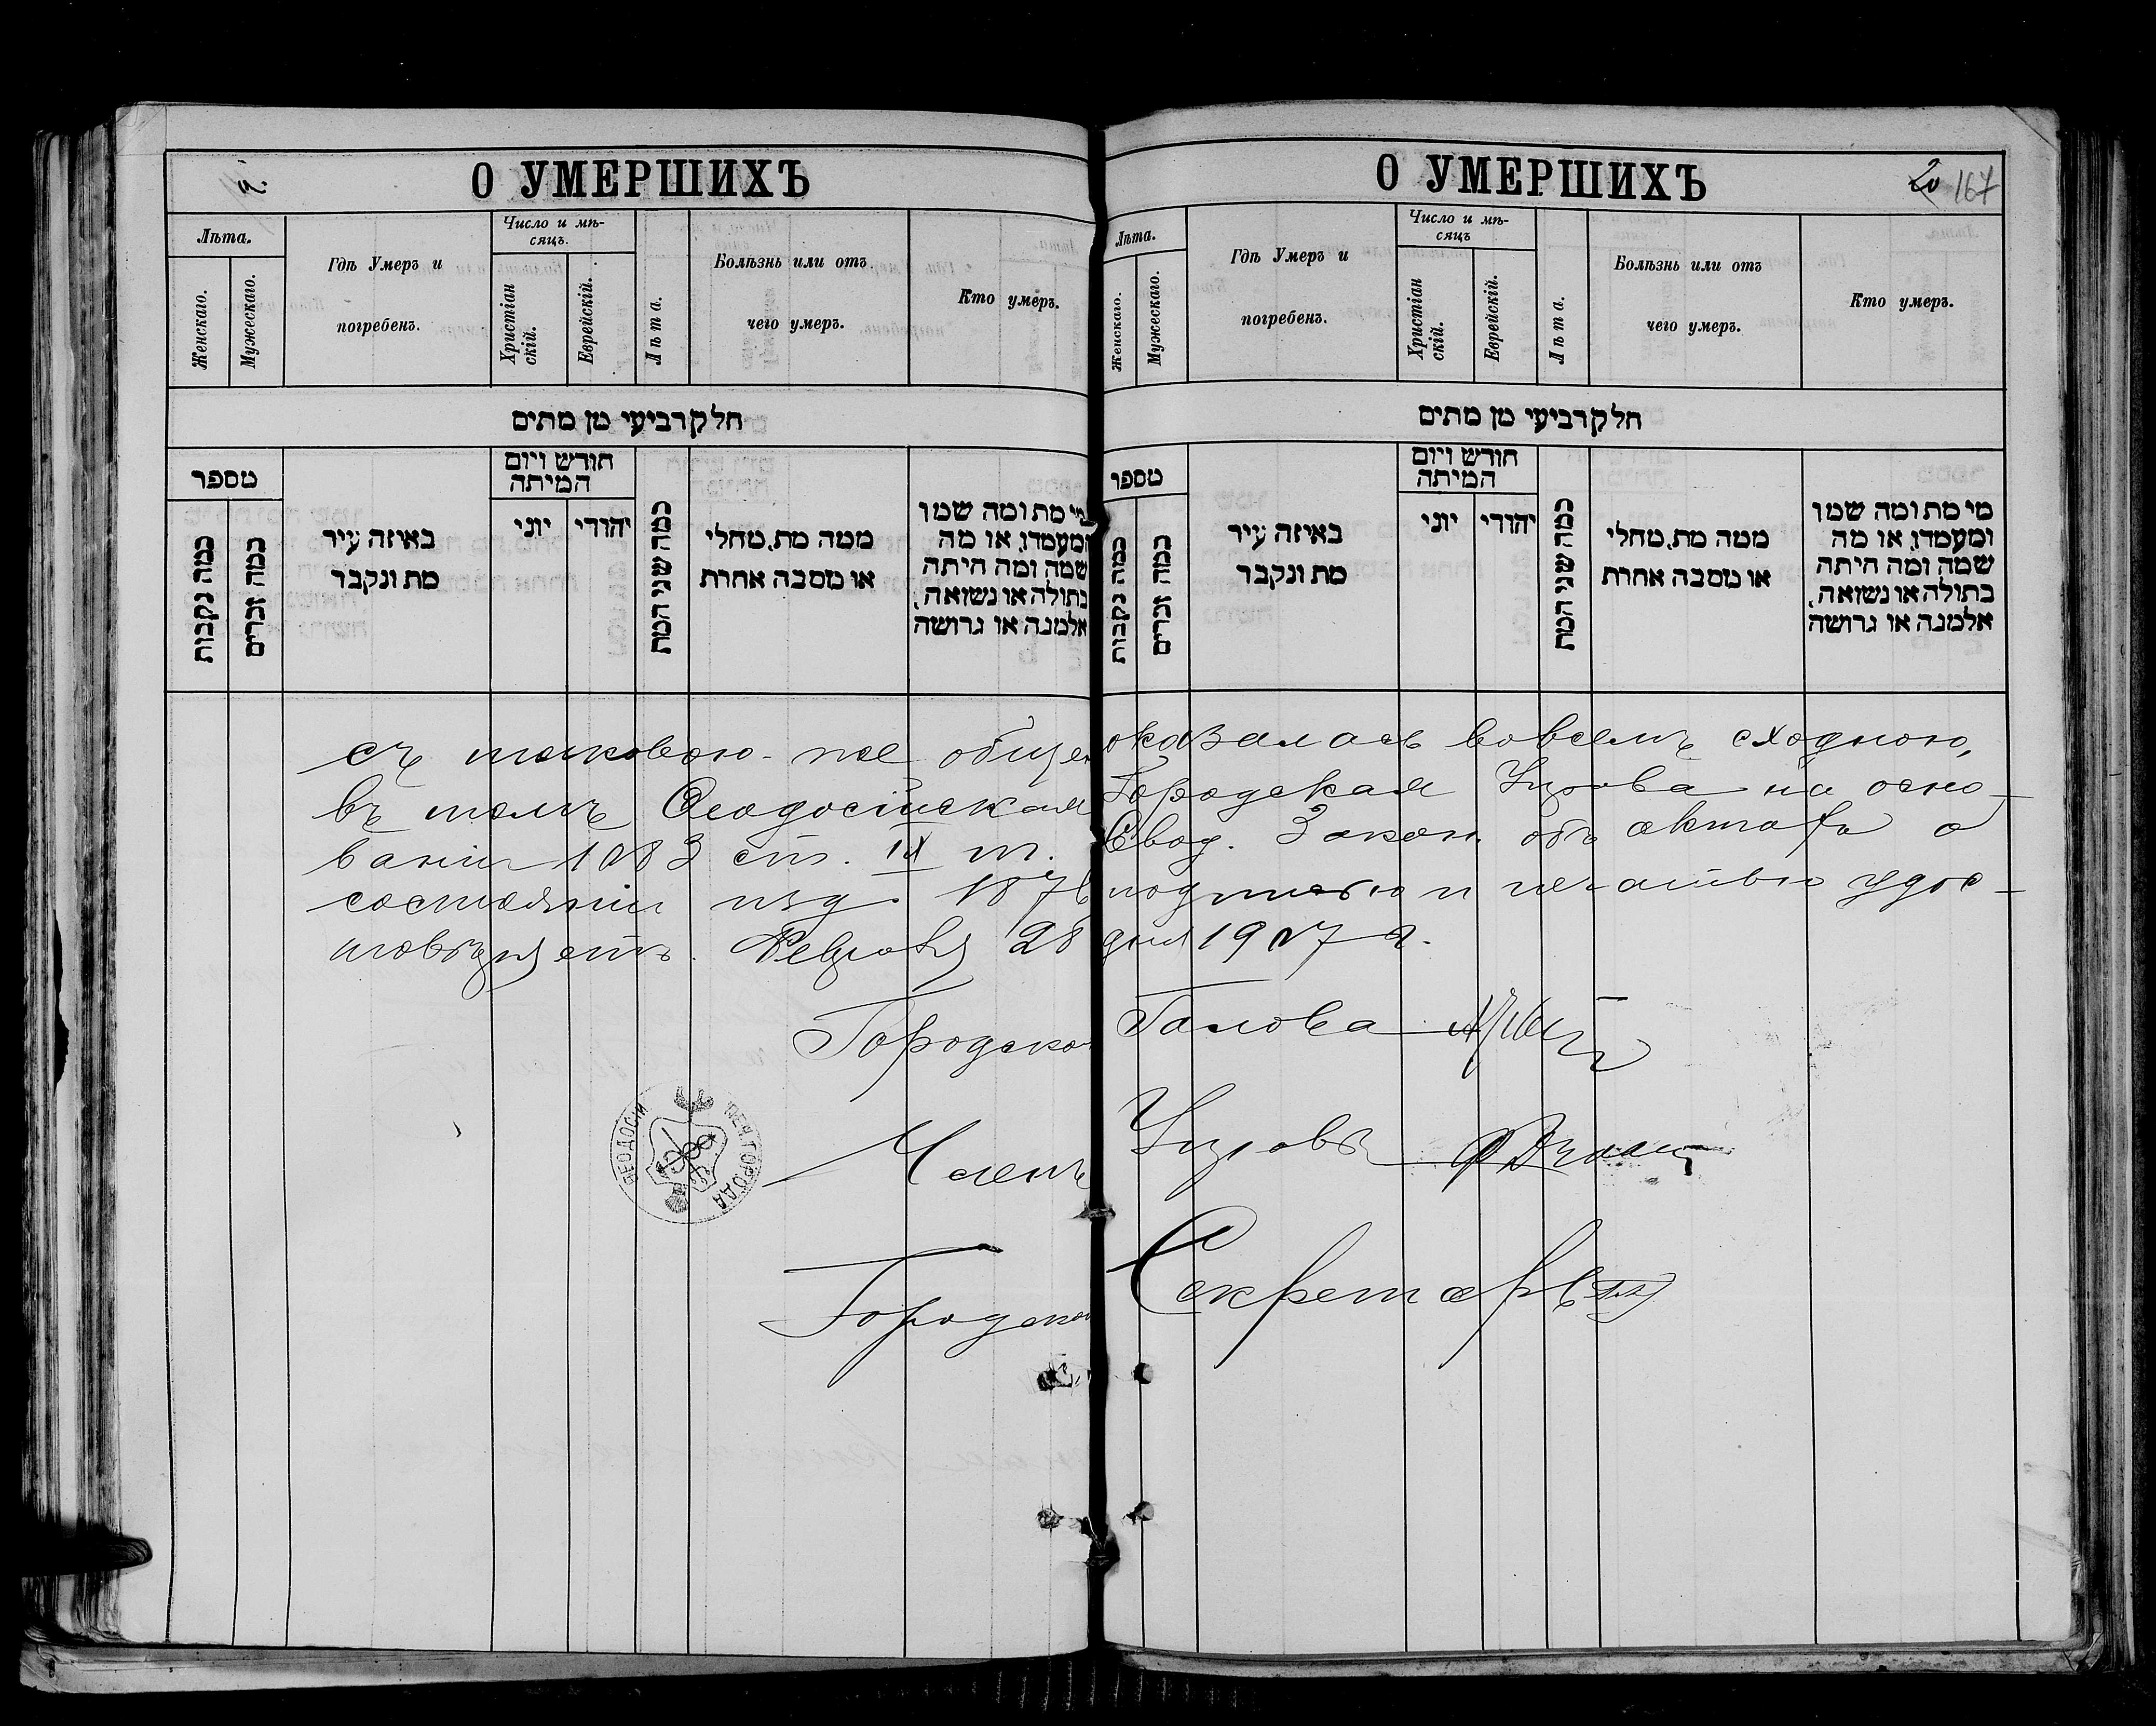 О УМЕРШИХЪ
Лѣта.
Женскаго.
Мужескаго.
Гдѣ Умеръ и
погребенъ.
Число и мѣ-
сяцъ.
Христіан
скій.
Еврейскій.
Лѣта.
Болѣзнь или отъ
чего умеръ.
Кто умеръ.
חלק רביעי מן מתים
מספר
כמה נקבות
כמה זכרים
באיזה עיר
מת ונקבר
חודש ויום
המיתה
יוני
יהודי
כמה שני המת
ממה מת, מחלי
או מסבה אחרת
מי מת ומה שמו
ומעמדו, או מה
שמה ומה היתה
בתולה או נשואה,
אלמנה או גרושה
О УМЕРШИХЪ
20 167
Лѣта.
Женскаго.
Мужескаго.
Гдѣ Умеръ и
погребенъ.
Число и мѣ-
сяцъ
Христіан
скій.
Еврейскій.
Лѣта.
Болѣзнь или отъ
чего умеръ.
Кто умеръ.
חלק רביעי מן מתים
מספר
כמה נקבות
כמה זכרים
באיזה עיר
מת ונקבר
חודש ויום
המיתה
יוני
יהודי
כמה שני המת
ממה מת, מחלי
או מסבה אחרת
מי מת ומה שמו
ומעמדו, או מה
שמה ומה היתה
בתולה או נשואה,
אלמנה או גרושה
съ таковою-же общей оказалась вовсемъ сходною,
въ томъ Ѳеодосійская Городская Управа на осно-
ваніи 1083 ст. IX т. Свод. Закон. объ актахъ о
состояніи изд. 1876 подписью и печатью удос-
товѣряетъ. Февраля 28 дня 1907 г.
Городской Голова
Членъ Управы
ПЕЧ. ГОРОДА ѲЕОДОСІИ
Городской Секретарь